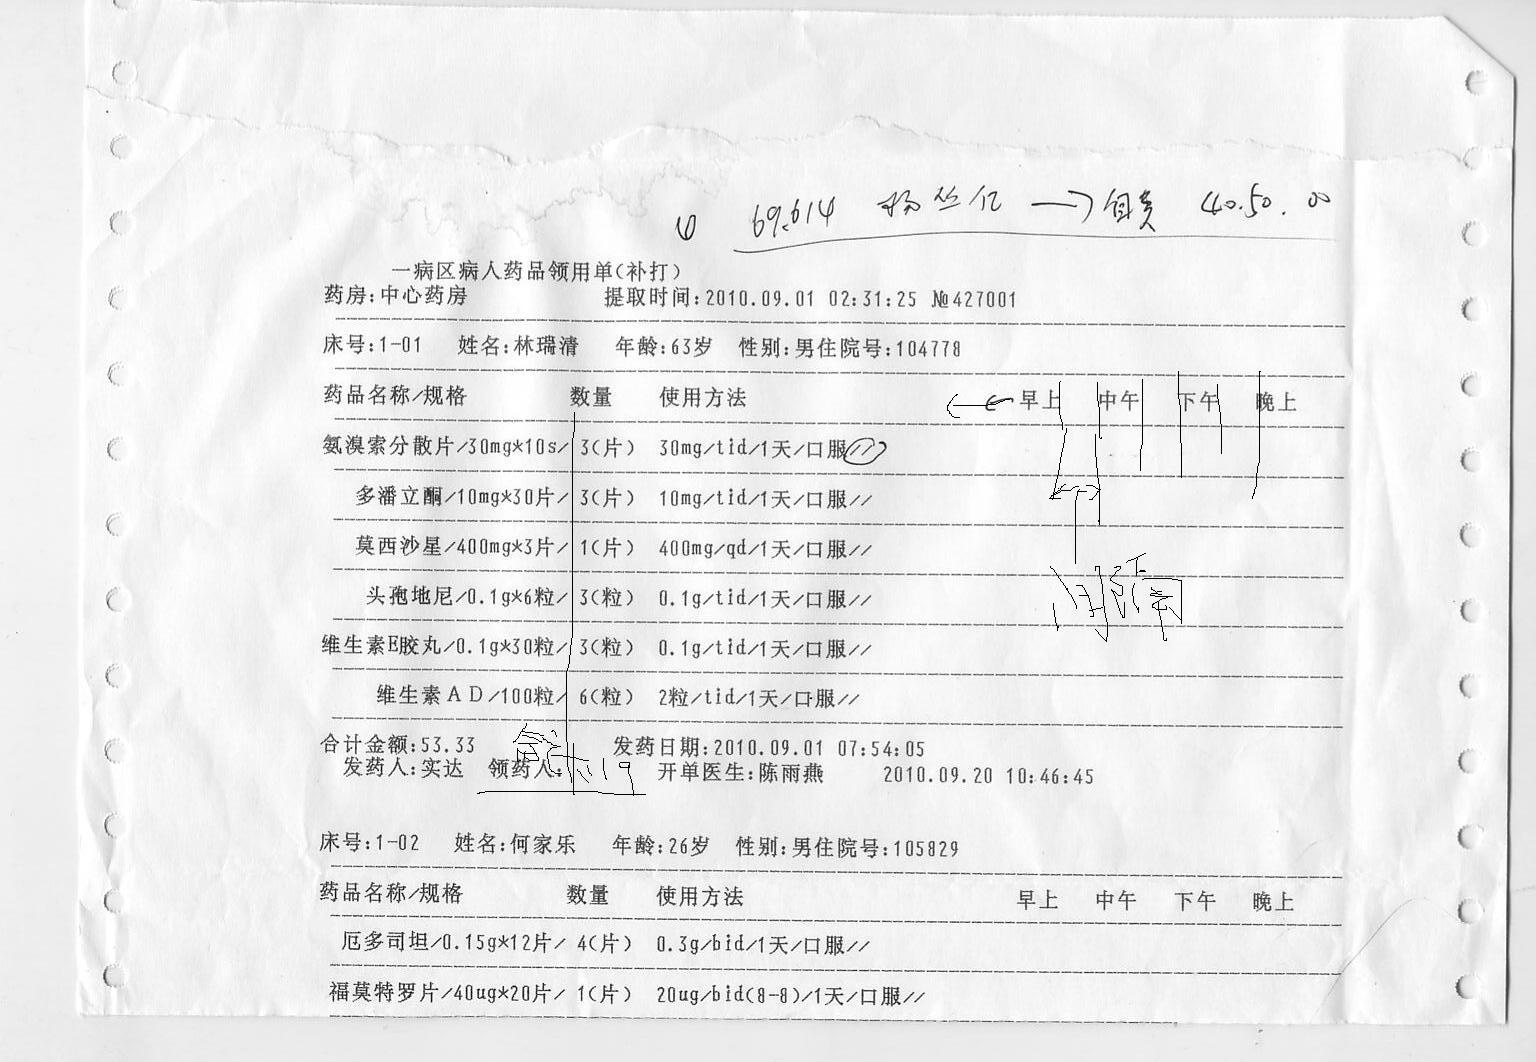 69.614 杨丛仁 → 自费 40.50.00
一病区病人药品领用单(补打)
药房:中心药房 提取时间:2010.09.01 02:31:25 №427001
床号:1-01 姓名:林瑞清 年龄:63岁 性别:男住院号:104778
药品名称/规格 数量 使用方法 早上 中午 下午 晚上
氨溴索分散片/30mg*10s/ 3(片) 30mg/tid/1天/口服//
多潘立酮/10mg*30片/ 3(片) 10mg/tid/1天/口服//
莫西沙星/400mg*3片/ 1(片) 400mg/qd/1天/口服//
间隔
头孢地尼/0.1g*6粒/ 3(粒) 0.1g/tid/1天/口服//
维生素E胶丸/0.1g*30粒/ 3(粒) 0.1g/tid/1天/口服//
维生素ＡＤ/100粒/ 6(粒) 2粒/tid/1天/口服//
合计金额:53.33 发药日期:2010.09.01 07:54:05
发药人:实达 领药人: 开单医生:陈雨燕 2010.09.20 10:46:45
床号:1-02 姓名:何家乐 年龄:26岁 性别:男住院号:105829
药品名称/规格 数量 使用方法 早上 中午 下午 晚上
厄多司坦/0.15g*12片/ 4(片) 0.3g/bid/1天/口服//
福莫特罗片/40ug*20片/ 1(片) 20ug/bid(8-8)/1天/口服//